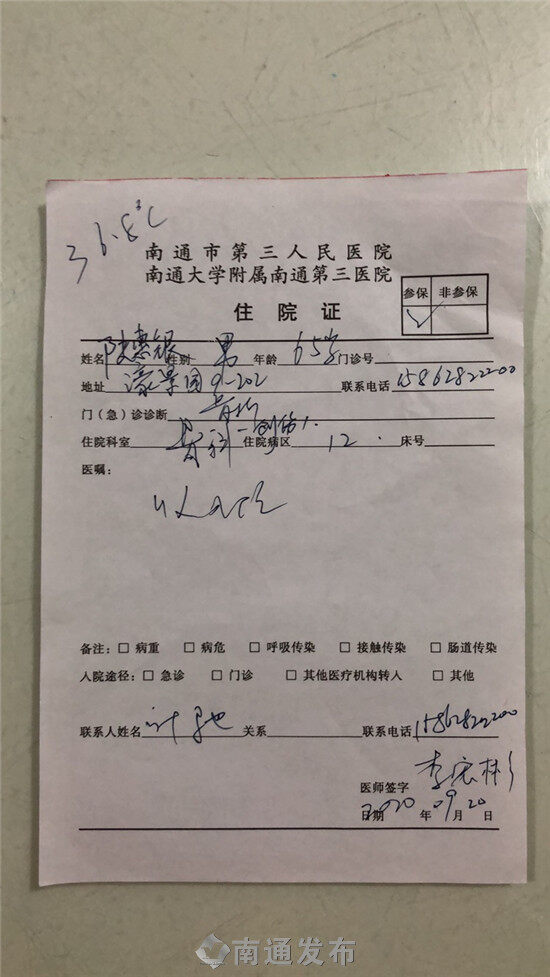 36.8℃
南通市第三人民医院
南通大学附属南通第三医院
参保 非参保
✓
住院证
姓名 陆惠银 性别 男 年龄 65岁 门诊号
地址 濠景园9-202 联系电话 15862822200
门(急)诊诊断 骨折
住院科室 骨科-创伤1. 住院病区 12. 床号
医嘱:
备注: □ 病重 □ 病危 □ 呼吸传染 □ 接触传染 □ 肠道传染
入院途径: □ 急诊 □ 门诊 □ 其他医疗机构转入 □ 其他
联系人姓名 叶 关系 联系电话 15862822200
医师签字 李宏彬
日期 2020 年 09 月 20 日
南通发布